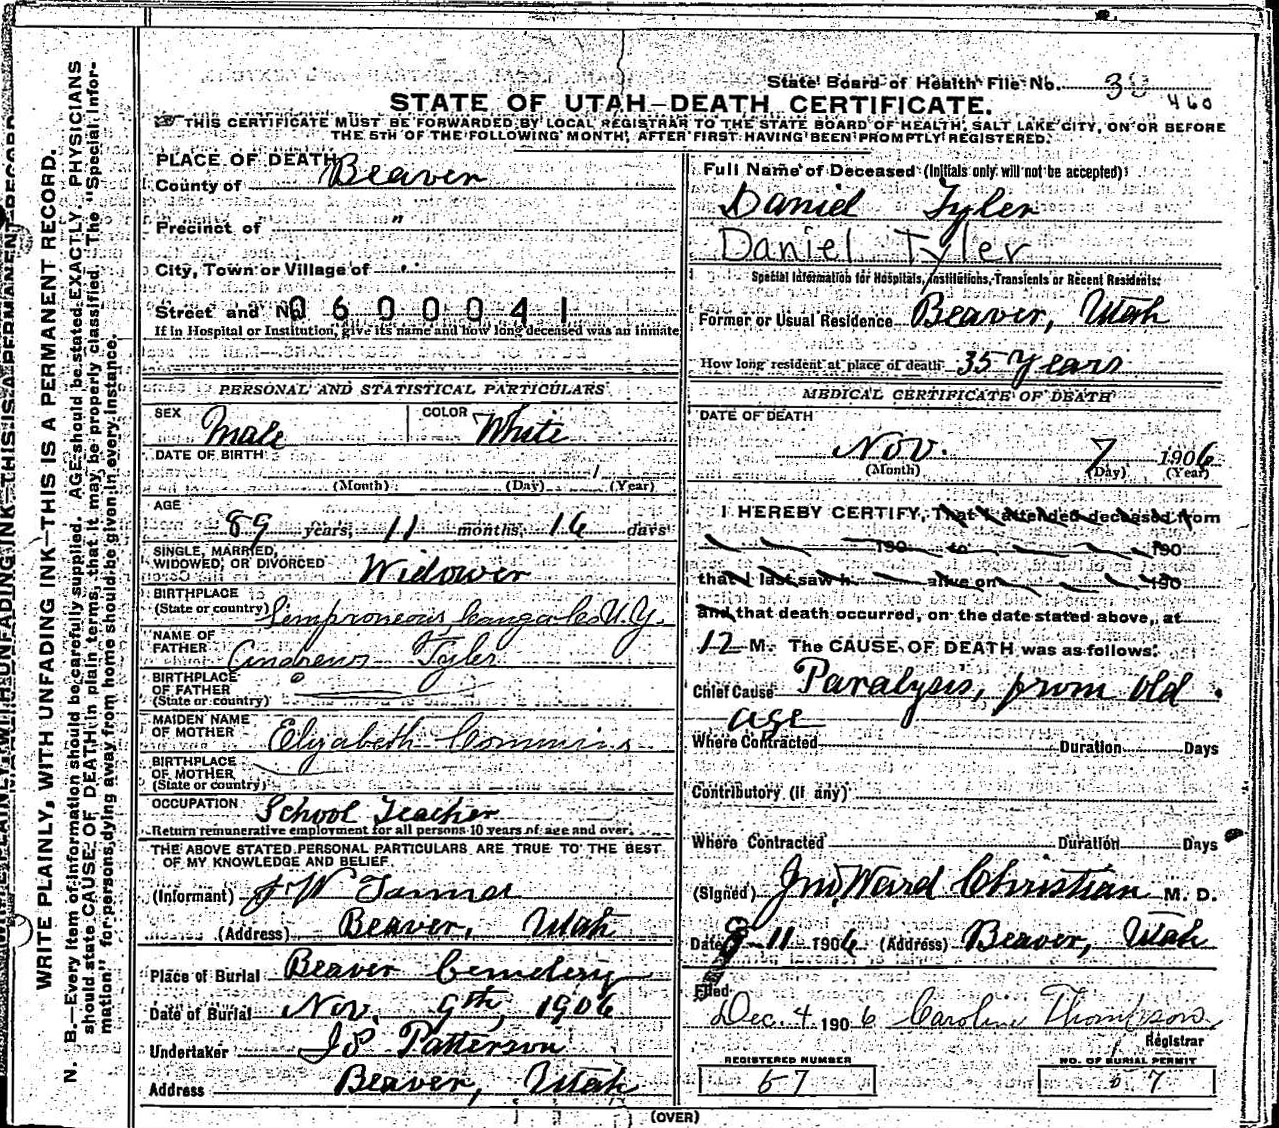 WRITE PLAINLY, WITH UNFADING INK—THIS IS A PERMANENT RECORD.
N. B.—Every item of information should be carefully supplied. AGE should be stated EXACTLY. PHYSICIANS
should state CAUSE OF DEATH in plain terms, that it may be properly classified. The "Special Infor-
mation" for persons dying away from home should be given in every instance.
State Board of Health File No.
460
STATE OF UTAH—DEATH CERTIFICATE.
THIS CERTIFICATE MUST BE FORWARDED BY LOCAL REGISTRAR TO THE STATE BOARD OF HEALTH, SALT LAKE CITY, ON OR BEFORE
THE 5TH OF THE FOLLOWING MONTH, AFTER FIRST HAVING BEEN PROMPTLY REGISTERED.
PLACE OF DEATH
County of Beaver
Precinct of "
City, Town or Village of "
Street and No. 0600041
If in Hospital or Institution, give its name and how long deceased was an inmate
PERSONAL AND STATISTICAL PARTICULARS
SEX Male COLOR White
DATE OF BIRTH
(Month) (Day) (Year)
AGE
89 years, 11 months, 16 days
SINGLE, MARRIED,
WIDOWED, OR DIVORCED Widower
BIRTHPLACE
(State or country) Semproneous Cauga Co. N.Y.
NAME OF
FATHER Andrews Tyler
BIRTHPLACE
OF FATHER
(State or country)
MAIDEN NAME
OF MOTHER Elizabeth Commins
BIRTHPLACE
OF MOTHER
(State or country)
OCCUPATION School Teacher
Return remunerative employment for all persons 10 years of age and over.
THE ABOVE STATED PERSONAL PARTICULARS ARE TRUE TO THE BEST
OF MY KNOWLEDGE AND BELIEF.
(Informant) J W Tanner
(Address) Beaver, Utah
Place of Burial Beaver Cemetery
Date of Burial Nov. 9th, 1906
Undertaker Patterson
Address Beaver, Utah
Full Name of Deceased (Initials only will not be accepted)
Daniel Tyler
Daniel Tyler
Special Information for Hospitals, Institutions, Transients or Recent Residents:
Former or Usual Residence Beaver, Utah
How long resident at place of death 35 Years
MEDICAL CERTIFICATE OF DEATH
DATE OF DEATH
Nov. 7 1906
(Month) (Day) (Year)
I HEREBY CERTIFY, That I attended deceased from
190 to 190
that I last saw h alive on 190
and that death occurred, on the date stated above, at
12 M. The CAUSE OF DEATH was as follows:
Chief Cause Paralysis, from old
age
Where Contracted Duration Days
Contributory (if any)
Where Contracted Duration Days
(Signed) Jno, Ward Christian M. D.
Date 9-11 1906 (Address) Beaver, Utah
Filed
Dec. 4 1906 Caroline Thompson
Registrar
REGISTERED NUMBER
57
NO. OF BURIAL PERMIT
57
(OVER)